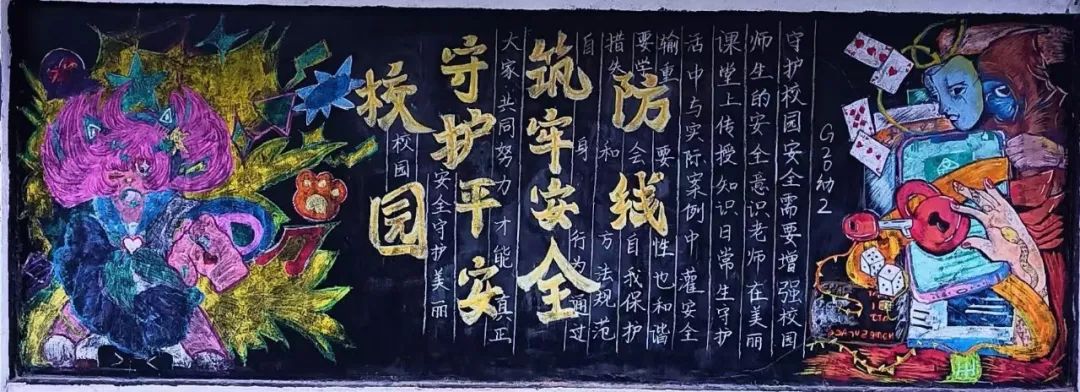 G20幼2
守护校园安全需要增强校园
师生的安全意识老师在美丽
课堂上传授知识日常生守护
活中与实际案例中灌安全
输重要性也和谐
要学会自我保护
措失和方法规范
自身行为通过
大家共同努力才能真正
安全守护美丽
校园
防线
筑牢安全
守护平安
校园